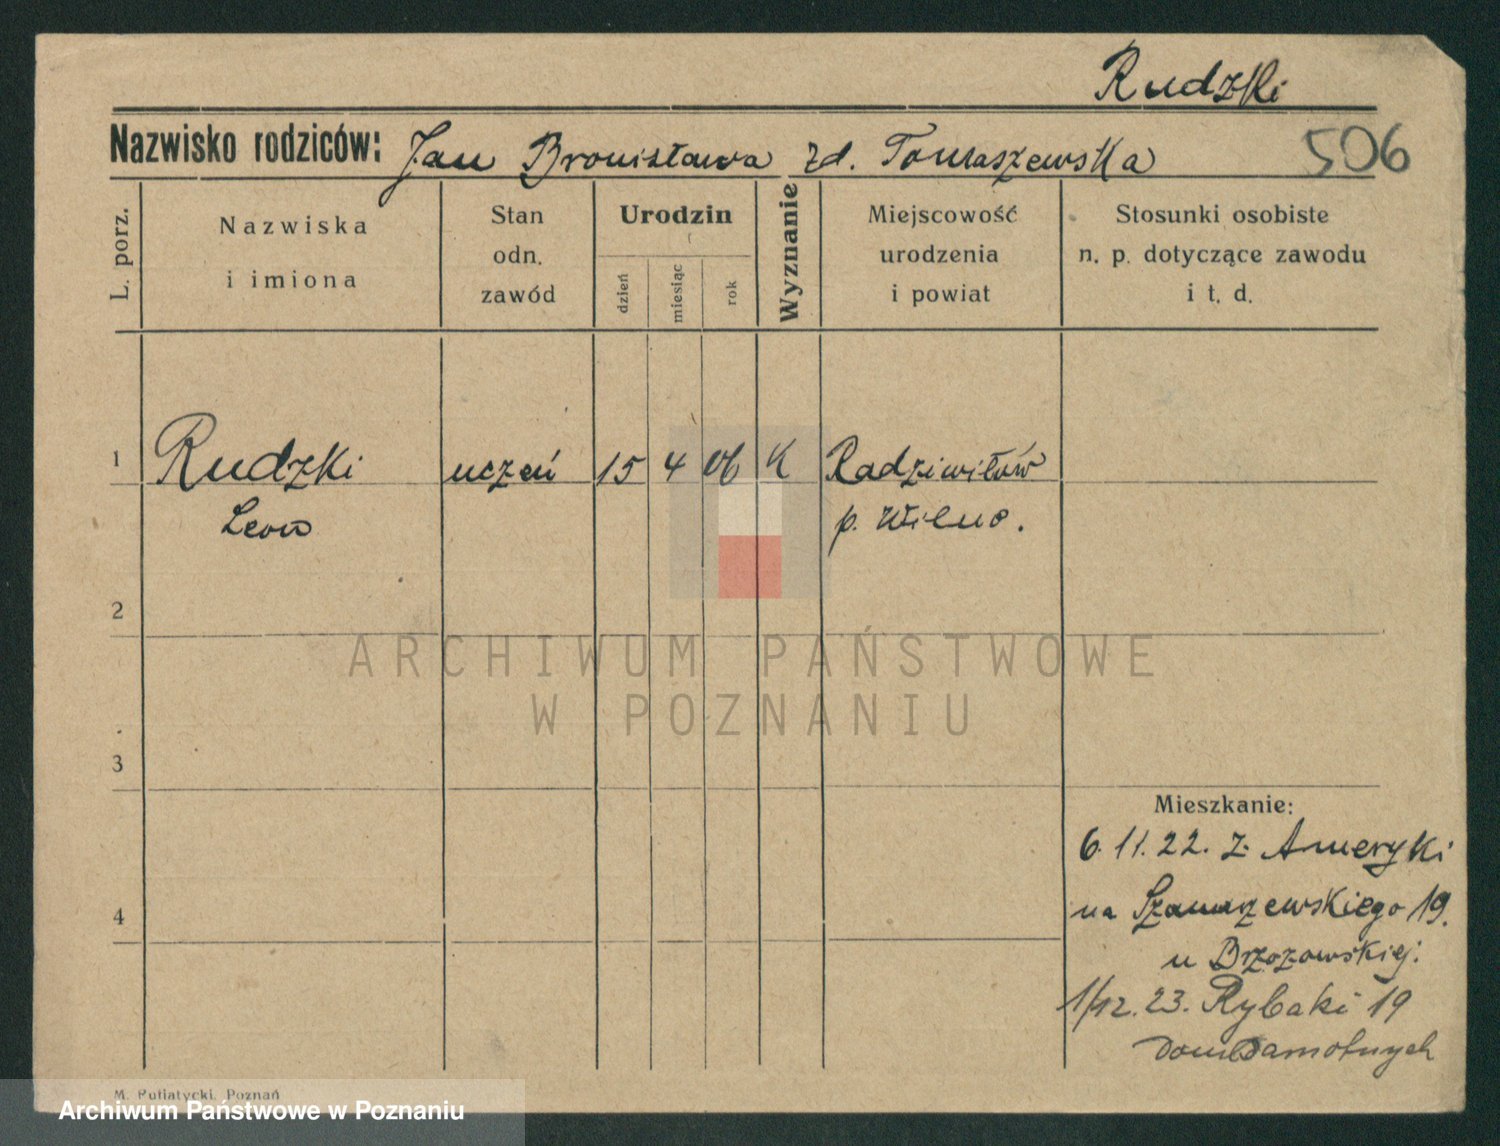 Rudzki
Nazwisko rodziców: Jan Bronisława zd. Tomaszewska 506
L. porz.
Nazwiska
i imiona
Stan
odn.
zawód
Urodzin
dzień
miesiąc
rok
Wyznanie
Miejscowość
urodzenia
i powiat
Stosunki osobiste
n. p. dotyczące zawodu
i t. d.
1 Rudzki uczeń 15 4 06 K Radziwiłów
Leon p. Wilno.
2
ARCHIWUM PAŃSTWOWE
W POZNANIU
3
Mieszkanie:
6. 11. 22. z Ameryki
4
na Szamarzewskiego 19.
u Brzozowskiej:
1/12. 23. Rybaki 19
M. Putiatycki, Poznań
Archiwum Państwowe w Poznaniu